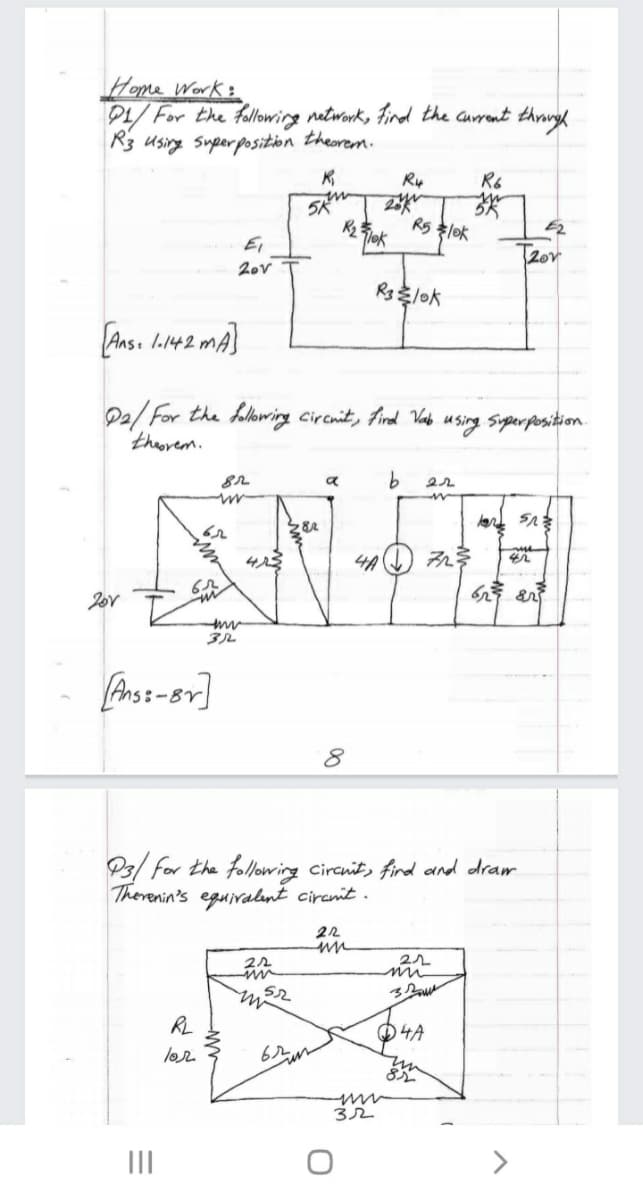 Home Work:
Q1/ For the following network, find the current through
R3 using superposition theorem.
R1 R4 R6
5K 20K 5K
R2 10K R5 10K
E1 E2
20V 20V
R3 10K
[Ans: 1.142 mA]
Q2/ For the following circuit, find Vab using superposition
theorem.
8Ω a b 2Ω
6Ω 8Ω 10Ω 5Ω
4Ω 4A 7Ω 4Ω
20V 6Ω 6Ω 8Ω
3Ω
[Ans:-8v]
8
Q3/ For the following circuit, find and draw
Thevenin's equivalent circuit.
2Ω
2Ω 2Ω
5Ω 3Ω
RL 4A
10Ω 6Ω
8Ω
3Ω